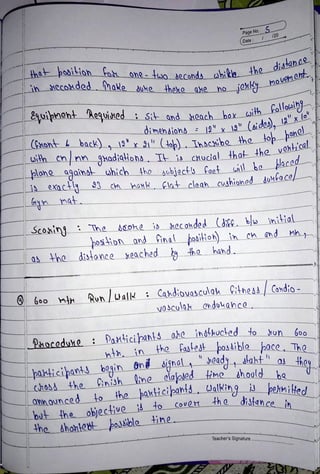 Page No. 5
Date: / /20
that position for one-two seconds while the distance
in recorded. Make sure there are no jerky movement.
Equipment Required : Sit and reach box with following
dimensions = 12" x 12" (sides), 12" x 10"
(front & back), 12" x 21" (top). Inscribe the top panel
with cm/mm gradiations. It is crucial that the vertical
plane against which the subject's feet will be placed
is exactly 23 cm mark. flat clean cushioned surface/
Gym mat.
Scoring : The score is recorded (diff. b/w initial
position and final position) in cm and mm,
as the distance reached by the hand.
600 mtr Run/Walk : Cardiovascular Fitness/Cardio-
vascular endurance.
Procedure : Participants are instructed to run 600
mtr. in the fastest possible pace. The
participants begin on signal, "ready, start" as they
cross the finish line elapsed time should be
announced to the participants. Walking is permitted
but the objective is to cover the distance in
the shortest possible time.
Teacher's Signature